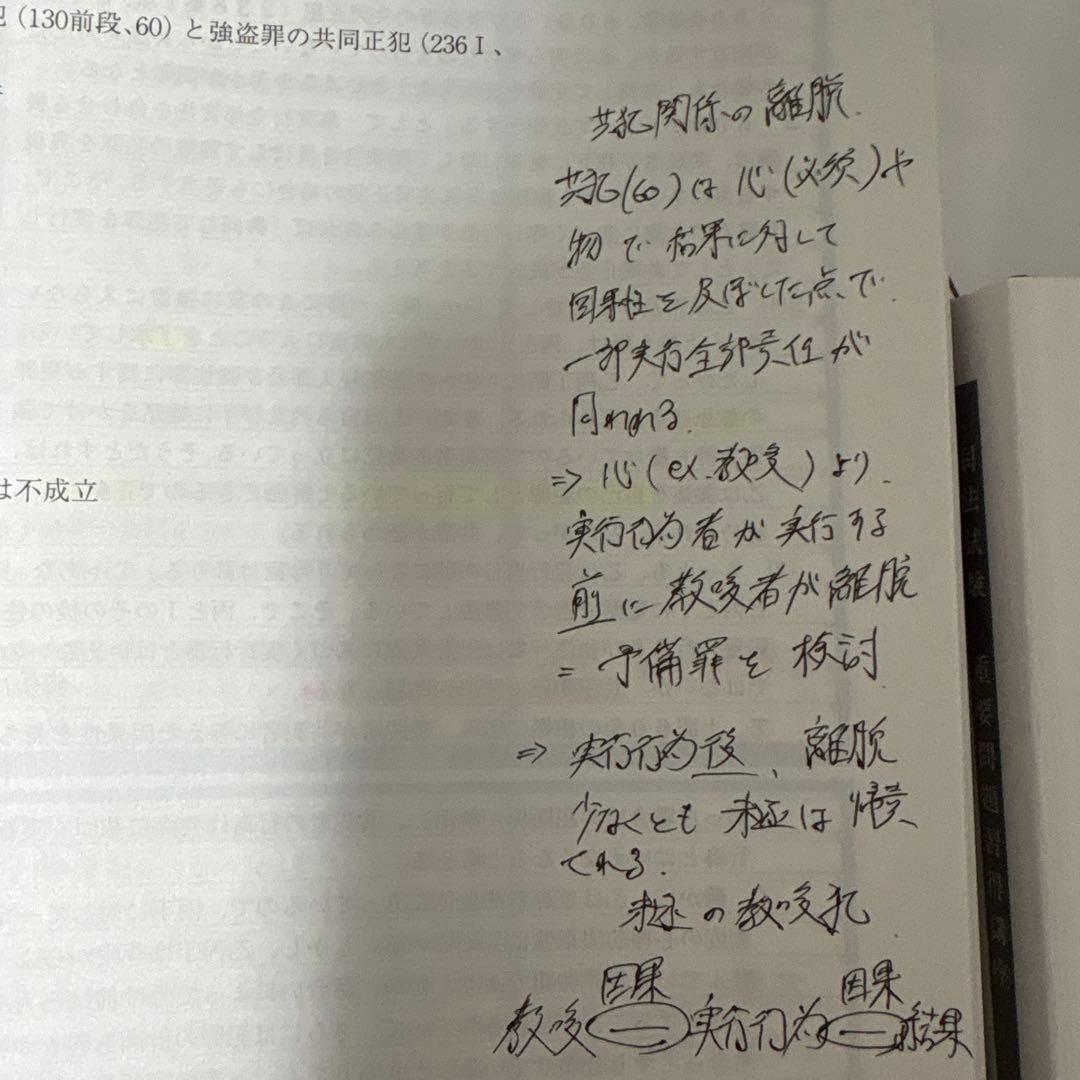 (130前段、60) と強盗罪の共同正犯 (236Ⅰ、
は不成立
共犯関係の離脱.
共犯(60)は 心(必須)や
物で 結果に対して
因果性を及ぼした点で.
一部実行全部責任が
問われる.
⇒ 心(ex.教唆)より.
実行行為者が実行する
前に教唆者が離脱
= 予備罪を検討
⇒ 実行行為後、離脱
少なくとも 未遂は 帰責
される.
未遂の教唆犯
因果 因果
教唆 実行行為 結果
重要問題習得講座